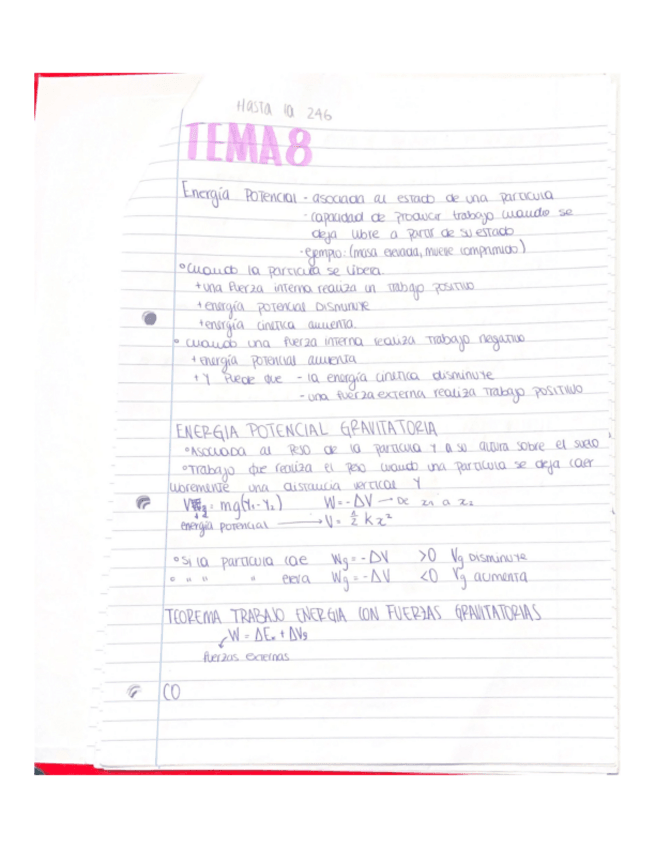 Hasta la 246
TEMA 8
Energía POTENCIAL - asociada al estado de una partícula
- capacidad de producir trabajo cuando se
deja libre a partir de su estado
· ejemplo: (masa elevada, muelle comprimido)
° Cuando la partícula se libera
+ una fuerza interna realiza un trabajo positivo
+ energía potencial disminuye
+ energía cinética aumenta.
° cuando una fuerza interna realiza trabajo negativo
+ energía potencial aumenta
+ Y puede que - la energía cinética disminuye
- una fuerza externa realiza trabajo positivo
ENERGIA POTENCIAL GRAVITATORIA
° Asociada al peso de la partícula y a su altura sobre el suelo
° Trabajo que realiza el peso cuando una partícula se deja caer
libremente una distancia vertical Y
= mg(Y₁ - Y₂) W = - ΔV → DE x₁ a x₂
energía potencial → V = ½ K x²
° Si la partícula cae Wg = - ΔV >0 Vg disminuye
° " " " eleva Wg = - ΔV <0 Vg aumenta
TEOREMA TRABAJO ENERGIA CON FUERZAS GRAVITATORIAS
W = ΔEc + ΔVg
fuerzas externas
CO